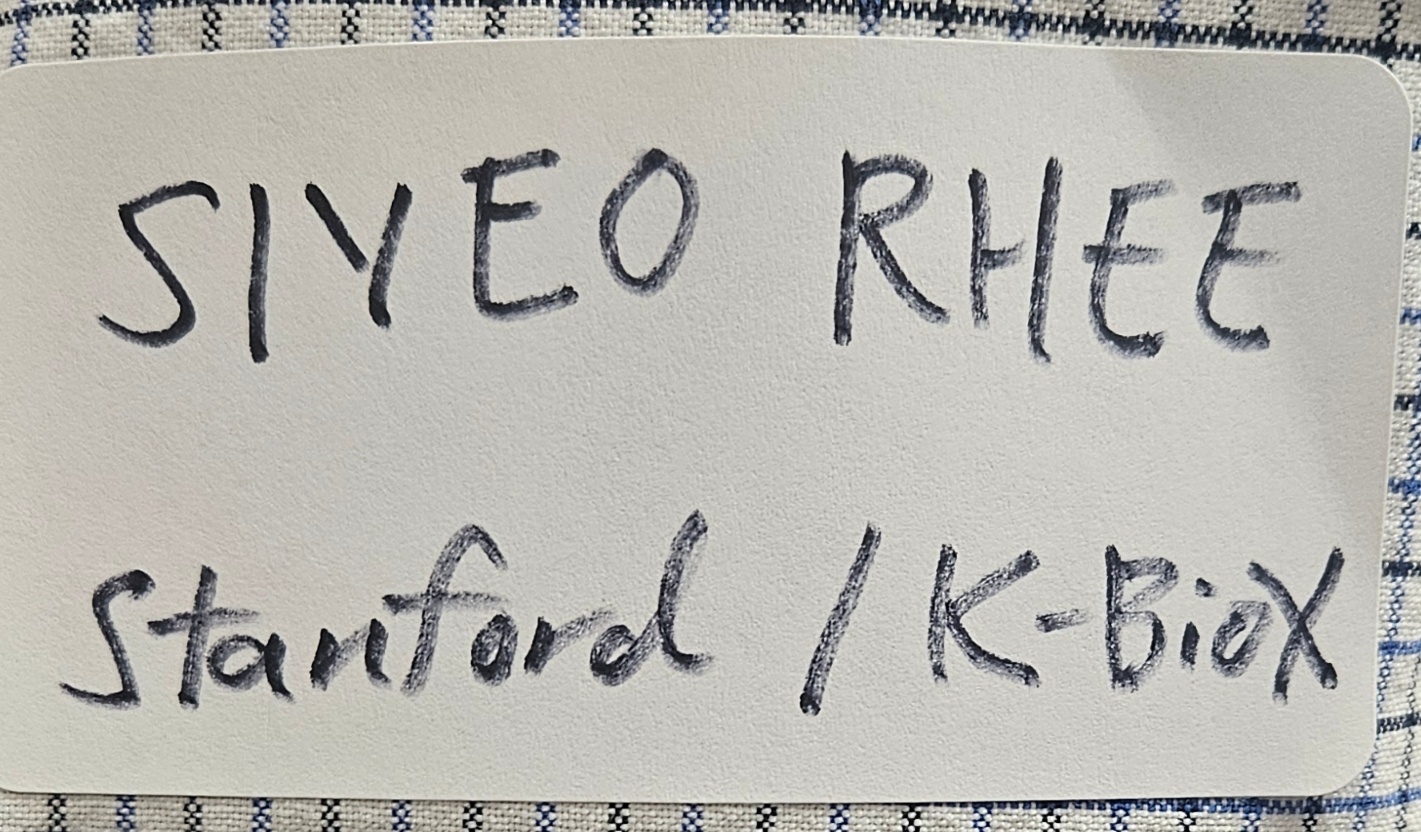 SIYEO RHEE
Stanford / K-BioX